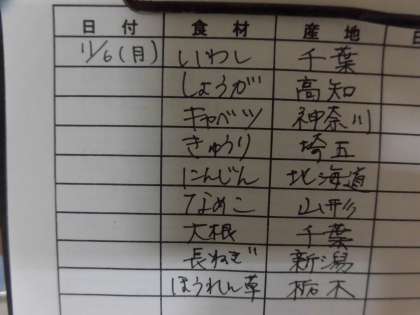 日付 食材 産地 日
11/6(月) いわし 千葉
しょうが 高知
キャベツ 神奈川
きゅうり 埼玉
にんじん 北海道
なめこ 山形
大根 千葉
長ねぎ 新潟
ほうれん草 栃木